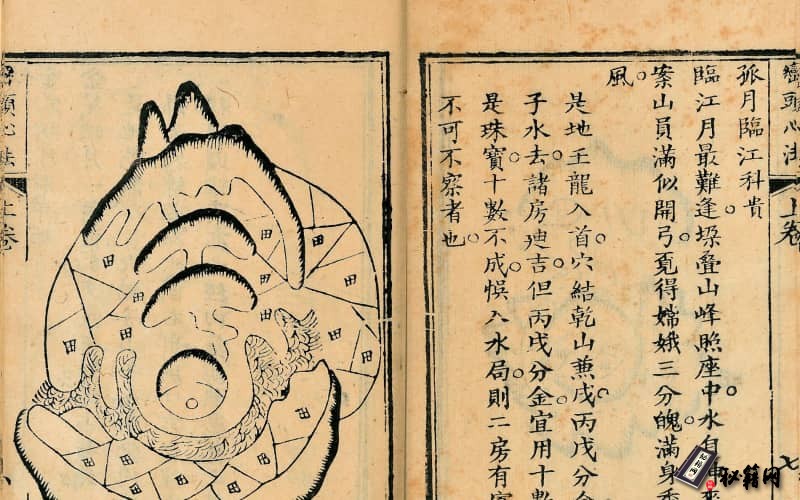 巒頭心法
上卷
七
孤月臨江科貴
臨江月最難逢。垜叠山峰照座中。水自申
案山員滿似開弓。覓得嫦娥三分魄。滿身香
風。
是地壬龍入首。穴結乾山兼戌。丙戌分金
子水去。諸房迪吉。但丙戌分金。宜用十數
是珠寶十數不成。悞入水局。則二房有
不可不察者也。
巒頭心法
上卷
田
田
田
田
田
田
田
田
田
田
田
田
田
秘籍网